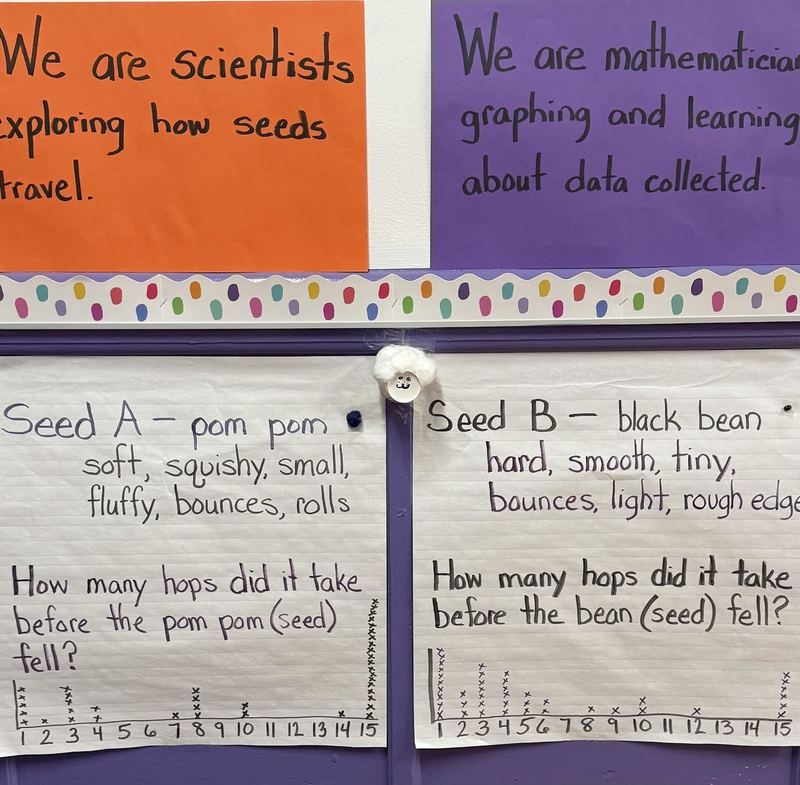 We are scientists
exploring how seeds
travel.
We are mathematician
graphing and learning
about data collected.
Seed A – pom pom
soft, squishy, small,
fluffy, bounces, rolls
How many hops did it take
before the pom pom (seed)
fell?
1 2 3 4 5 6 7 8 9 10 11 12 13 14 15
Seed B – black bean
hard, smooth, tiny,
bounces, light, rough edge
How many hops did it take
before the bean (seed) fell?
1 2 3 4 5 6 7 8 9 10 11 12 13 14 15